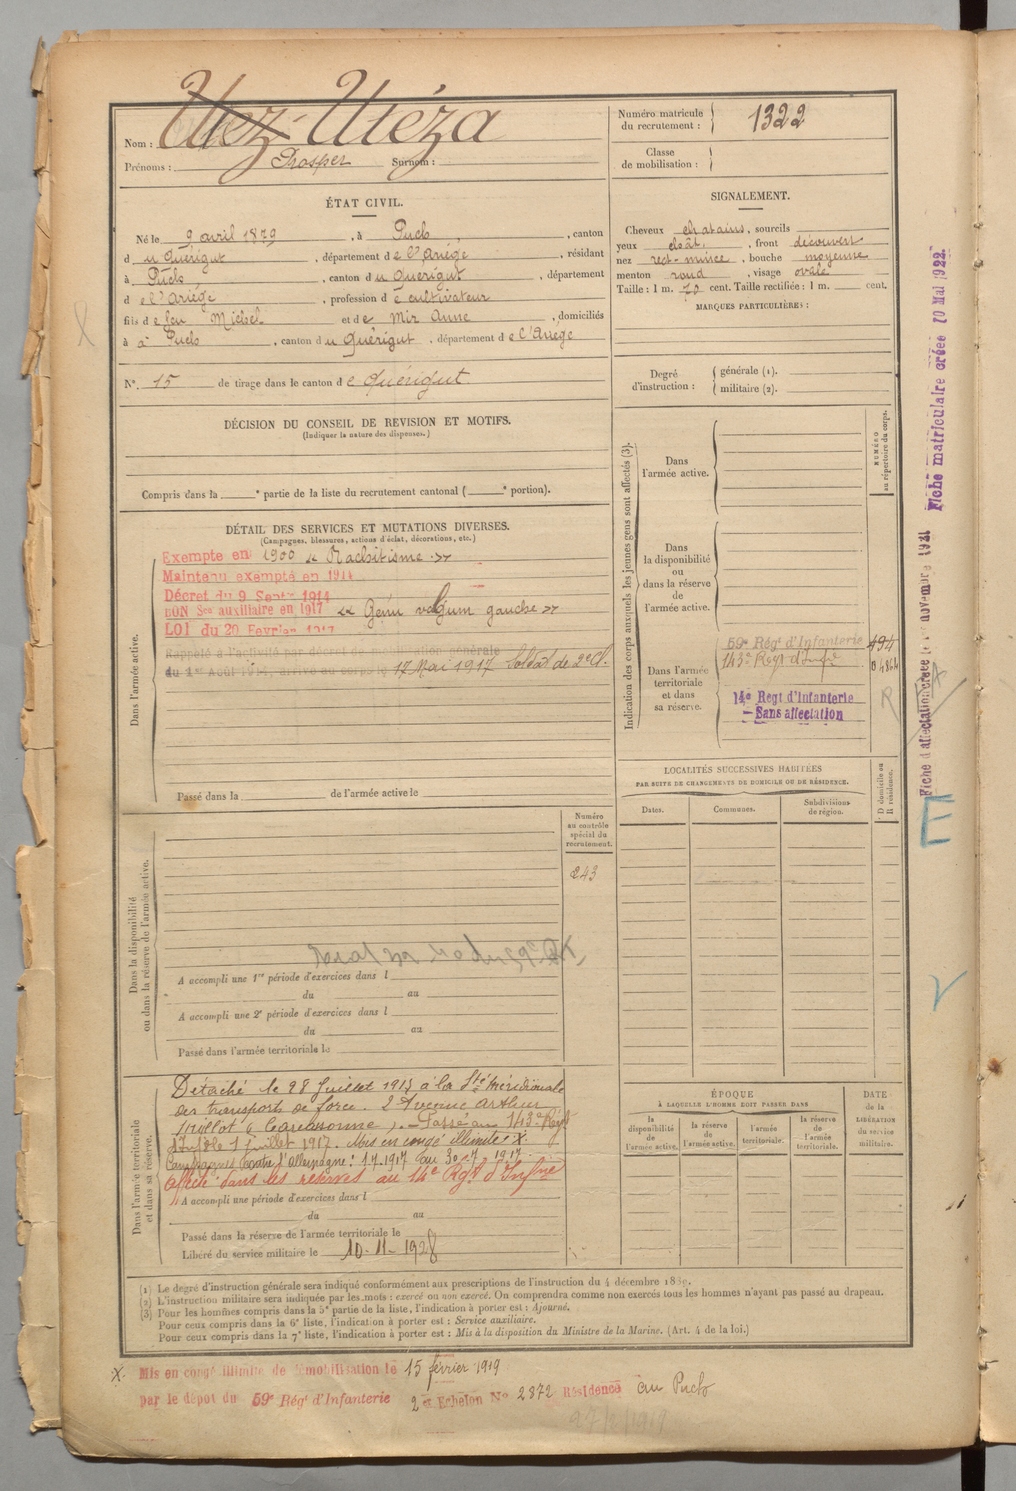 Nom : Utez Utéza
Prénoms : Prosper Surnom :
Numéro matricule du recrutement : 1322
Classe de mobilisation :
ÉTAT CIVIL.
Né le 9 avril 1879, à Puch, canton
du Quérigut, département de l'Ariège, résidant
à Puch, canton du Quérigut, département
d e l'Ariège, profession de cultivateur
fils de feu Michel et de Mir Anne, domiciliés
à à Puch, canton du Quérigut, département de l'Ariège
N°. 15 de tirage dans le canton de Quérigut
SIGNALEMENT.
Cheveux chatains, sourcils
yeux chât., front découvert
nez rect-mince, bouche moyenne
menton rond, visage ovale
Taille : 1 m. 70 cent. Taille rectifiée : 1 m. cent.
MARQUES PARTICULIÈRES :
Degré d'instruction : générale (1).
militaire (2).
DÉCISION DU CONSEIL DE REVISION ET MOTIFS.
(Indiquer la nature des dispenses.)
Compris dans la e partie de la liste du recrutement cantonal ( e portion).
DÉTAIL DES SERVICES ET MUTATIONS DIVERSES.
(Campagnes, blessures, actions d'éclat, décorations, etc.)
Dans l'armée active.
Exempté en 1900 « Rachitisme »
Maintenu exempté en 1914
Décret du 9 Septe 1914
BON Sce auxiliaire en 1917 « Genu valgum gauche »
LOI du 20 Février 1917
Rappelé à l'activité par décret de mobilisation générale
du 1er Août 1914, arrivé au corps le 17 Mai 1917 Soldat de 2e Cl.
Passé dans la de l'armée active le
Indication des corps auxquels les jeunes gens sont affectés (3).
NUMÉRO au répertoire du corps.
Dans l'armée active.
Dans la disponibilité ou dans la réserve de l'armée active.
Dans l'armée territoriale et dans sa réserve.
59e Régt d'Infanterie 494
143e Régt d'Infie
14e Regt d'Infanterie
Sans affectation
R
LOCALITÉS SUCCESSIVES HABITÉES
PAR SUITE DE CHANGEMENTS DE DOMICILE OU DE RÉSIDENCE.
Dates. Communes. Subdivisions de région. D domicile ou R résidence.
Dans la disponibilité ou dans la réserve de l'armée active.
Numéro au contrôle spécial du recrutement.
243
A accompli une 1re période d'exercices dans l
du au
A accompli une 2e période d'exercices dans l
du au
Passé dans l'armée territoriale le
Dans l'armée territoriale et dans sa réserve.
Détaché le 28 Juillet 1917 à la Sté Méridionale
des transports de force. 2 Avenue Arthur
Mullot (Carcassonne). – Passé au 143e Régt
d'Inf. le 1 juillet 1917. Mis en congé illimité X.
Campagnes contre l'Allemagne : 1-7-1917 au 30-7-1917.
Affecté dans les réserves au 14e Rgt d'Infrie
A accompli une période d'exercices dans l
du au
Passé dans la réserve de l'armée territoriale le
Libéré du service militaire le 10-11-1928
ÉPOQUE
À LAQUELLE L'HOMME DOIT PASSER DANS
la disponibilité de l'armée active. la réserve de l'armée active. l'armée territoriale. la réserve de l'armée territoriale.
DATE de la LIBÉRATION du service militaire.
(1) Le degré d'instruction générale sera indiqué conformément aux prescriptions de l'instruction du 4 décembre 1889.
(2) L'instruction militaire sera indiquée par les mots : exercé ou non exercé. On comprendra comme non exercés tous les hommes n'ayant pas passé au drapeau.
(3) Pour les hommes compris dans la 5e partie de la liste, l'indication à porter est : Ajourné.
Pour ceux compris dans la 6e liste, l'indication à porter est : Service auxiliaire.
Pour ceux compris dans la 7e liste, l'indication à porter est : Mis à la disposition du Ministre de la Marine. (Art. 4 de la loi.)
X. Mis en congé illimité de démobilisation le 15 février 1919
par le dépôt du 59e Régt d'Infanterie 2e Echelon No 2872 Résidence au Puch
27/2/1919
Fiche matriculaire créée 10 Mai 1922.
Fiche d'affectation créée le 1er novembre 1921
E